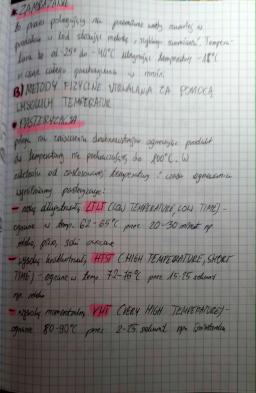 • ZAMRAŻANIE
to proces polegający na przemianie wody zawartej w
produkcie w lód stosując metodę „szybkiego zamrażania". Tempera-
tura to od -25° do -40°C utrzymując temperaturę -18°C
w czasie całego przechowywania w mroźni.
B) METODY FIZYCZNE UTRWALANIA ZA POMOCĄ
WYSOKICH TEMPERATUR
• PASTERYZACJA
polega na niszczeniu drobnoustrojów ogrzewając produkt
do temperatury nie przekraczającej do 100°C. W
zależności od zastosowanej temperatury i czasu ogrzewania
wyróżniamy pasteryzację:
– niską długotrwałą LTLT (LOW TEMPERATURE, LOW TIME) –
ogrzanie w temp. 62-65°C przez 20-30 minut np.
mleko, piwo, soki owocowe
– wysoką krótkotrwałą HTST (HIGH TEMPERATURE, SHORT
TIME) – ogrzanie w temp. 72-75°C przez 15-25 sekund
np. mleko
– wysoką momentalną VHT (VERY HIGH TEMPERATURE) –
ogrzanie 80-90°C przez 2-25 sekund np. śmietanka